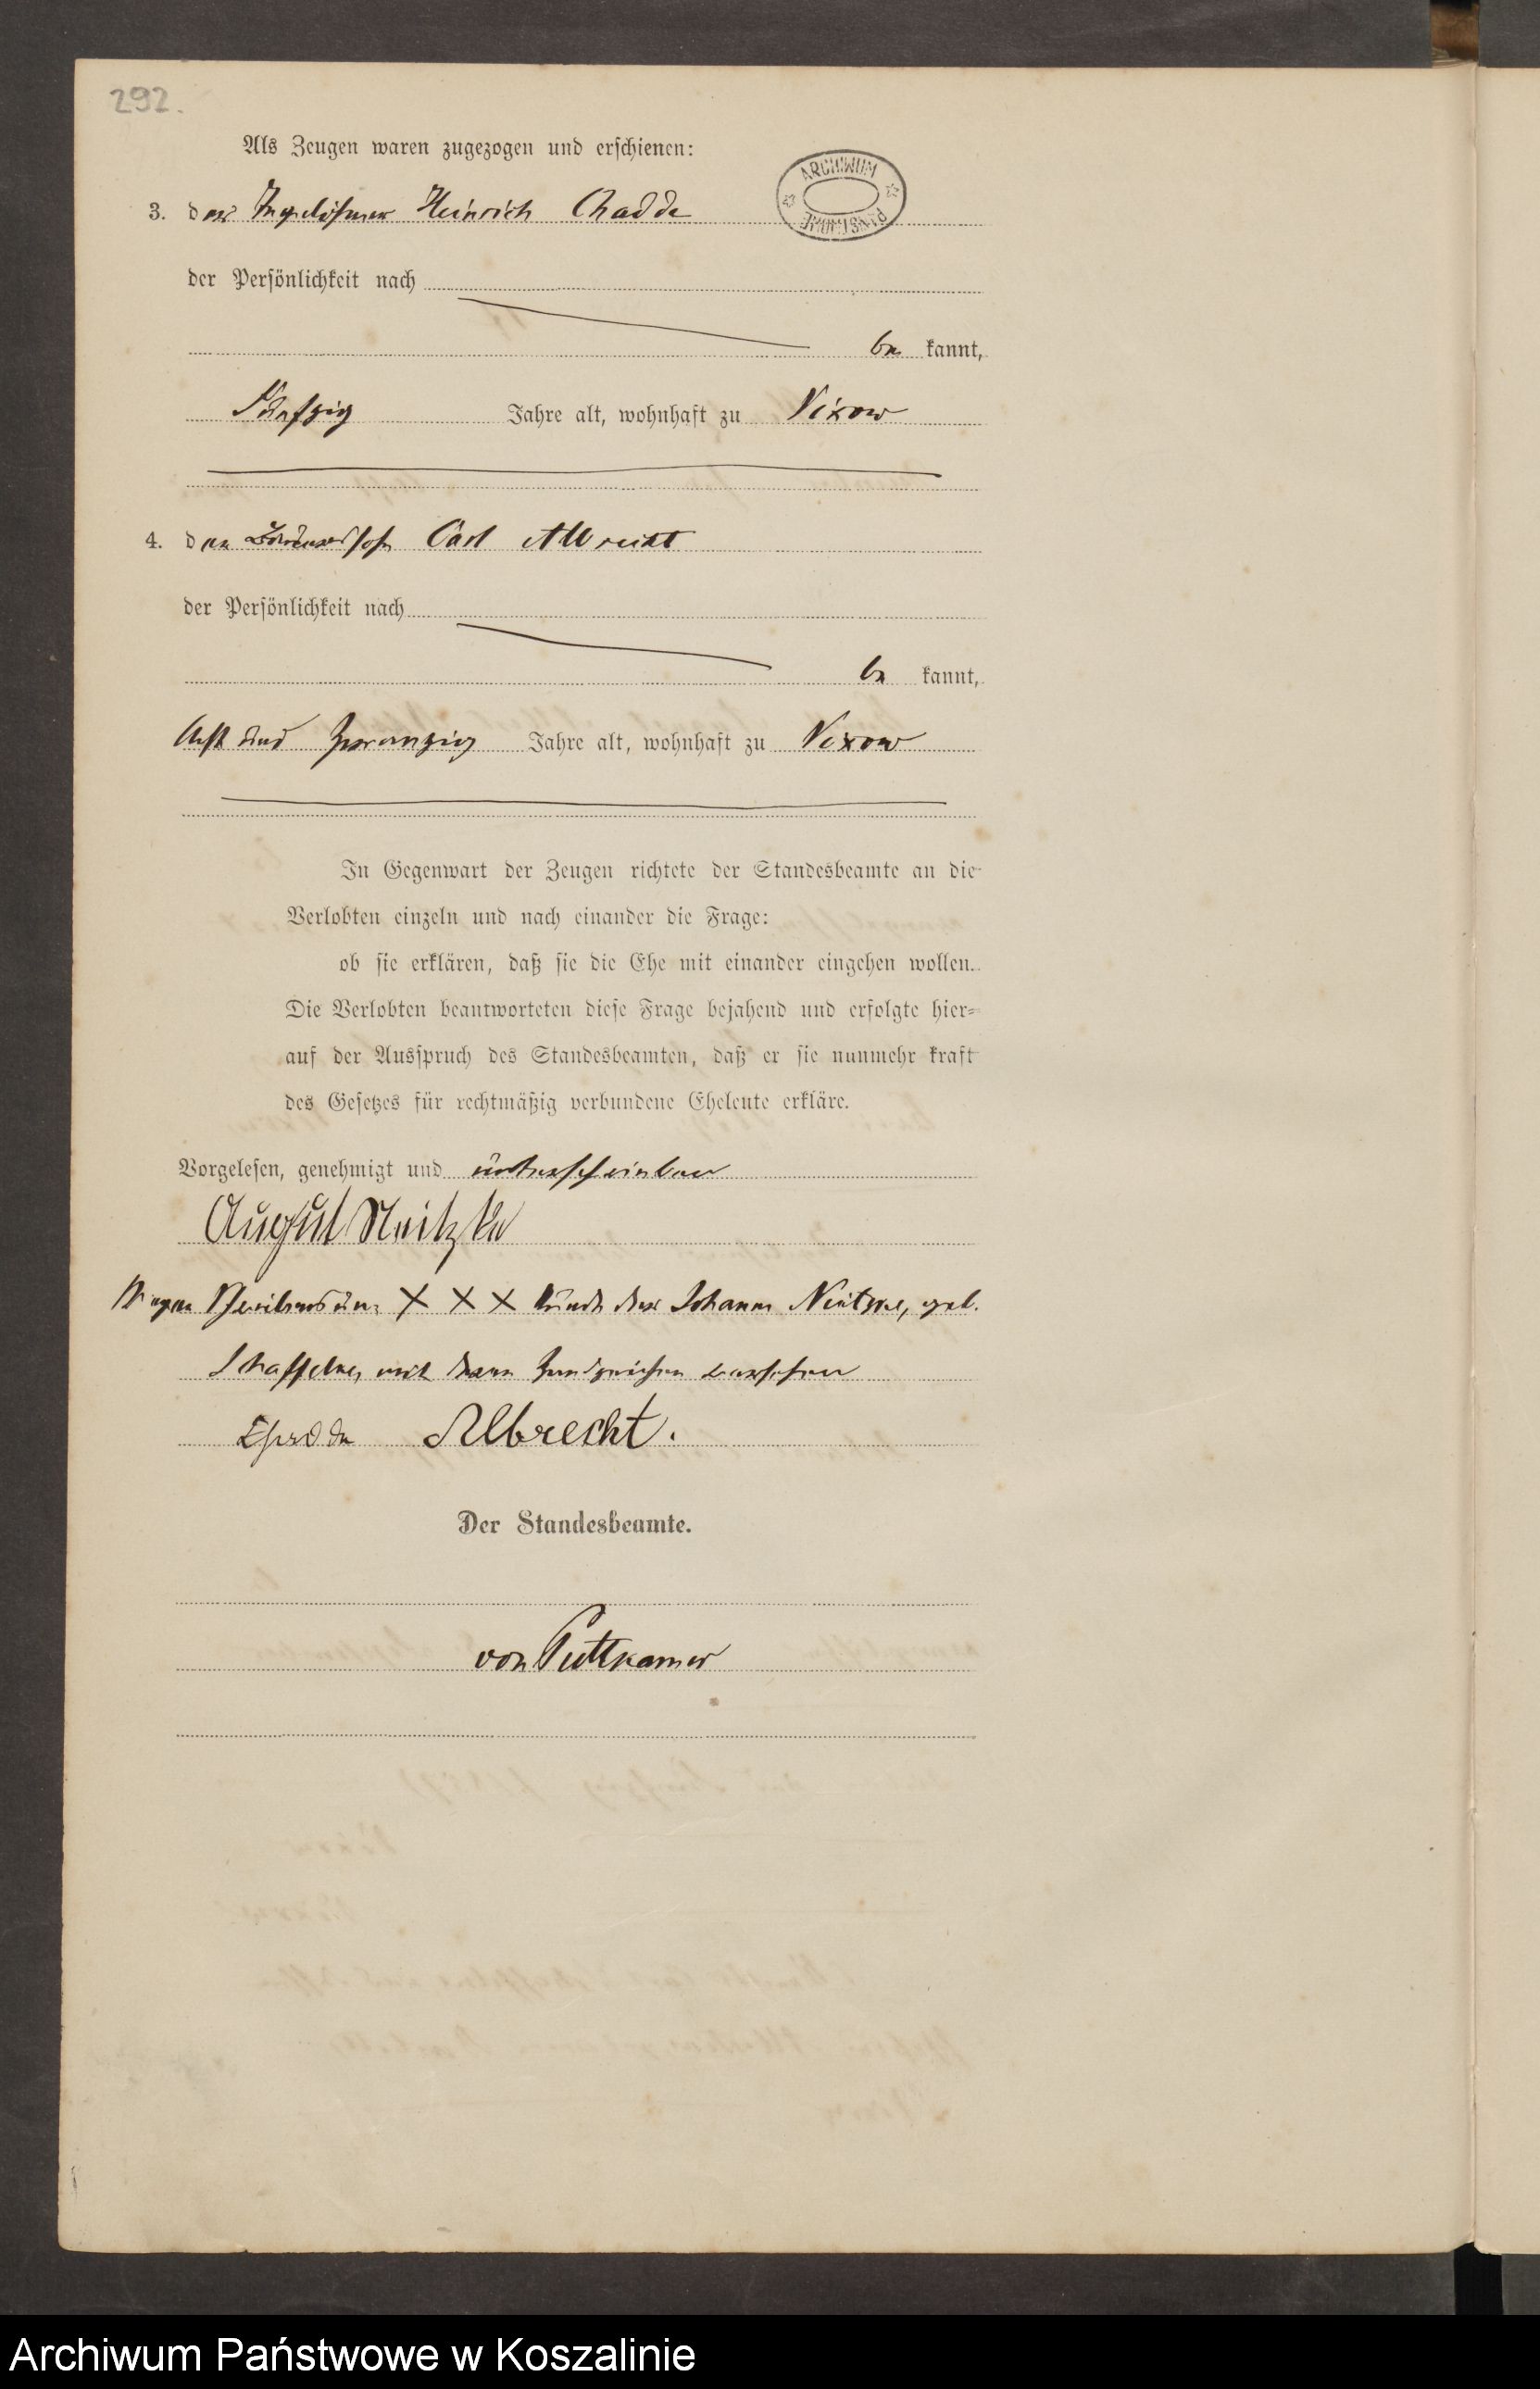 292.
Als Zeugen waren zugezogen und erschienen:
ARCHIWUM
PAŃSTWOWE
3. der Tagelöhner Heinrich Chadde
der Persönlichkeit nach
be kannt,
Fünfzig Jahre alt, wohnhaft zu Vixow
4. der Carl Albrecht
der Persönlichkeit nach
be kannt,
Acht und zwanzig Jahre alt, wohnhaft zu Vixow
In Gegenwart der Zeugen richtete der Standesbeamte an die
Verlobten einzeln und nach einander die Frage:
ob sie erklären, daß sie die Ehe mit einander eingehen wollen.
Die Verlobten beantworteten diese Frage bejahend und erfolgte hier=
auf der Ausspruch des Standesbeamten, daß er sie nunmehr kraft
des Gesetzes für rechtmäßig verbundene Eheleute erkläre.
Vorgelesen, genehmigt und unterschrieben
August Neitzke
Wegen X X X der Neitzke, geb.
mit dem Handzeichen versehen
Albrecht.
Der Standesbeamte.
von Puttkamer
Archiwum Państwowe w Koszalinie